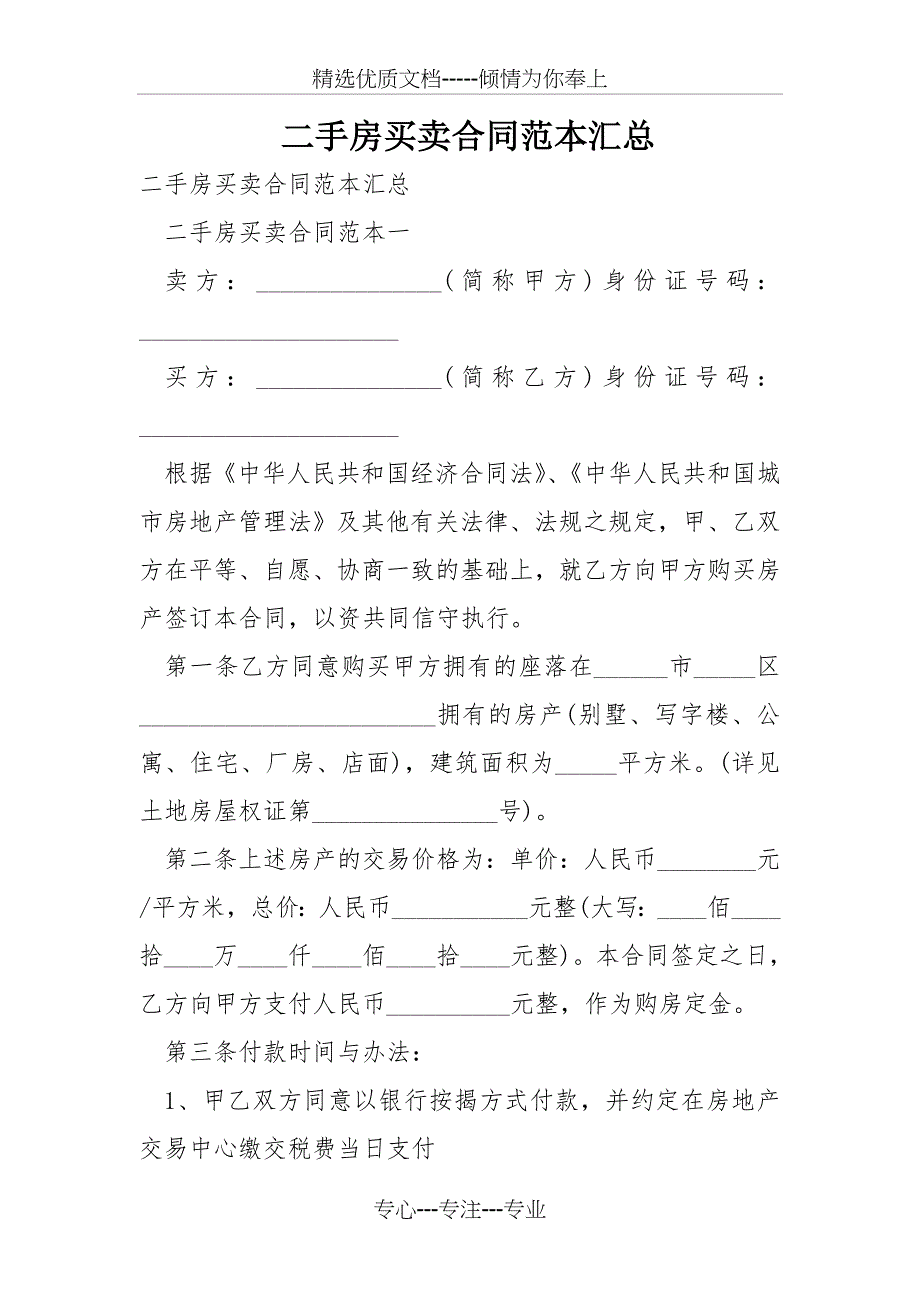 精选优质文档-----倾情为你奉上
二手房买卖合同范本汇总
二手房买卖合同范本汇总
二手房买卖合同范本一
卖方：_______________(简称甲方)身份证号码：
_____________________
买方：_______________(简称乙方)身份证号码：
_____________________
根据《中华人民共和国经济合同法》、《中华人民共和国城
市房地产管理法》及其他有关法律、法规之规定，甲、乙双
方在平等、自愿、协商一致的基础上，就乙方向甲方购买房
产签订本合同，以资共同信守执行。
第一条乙方同意购买甲方拥有的座落在______市_____区
________________________拥有的房产(别墅、写字楼、公
寓、住宅、厂房、店面)，建筑面积为_____平方米。(详见
土地房屋权证第_______________号)。
第二条上述房产的交易价格为：单价：人民币________元
/平方米，总价：人民币___________元整(大写：____佰____
拾____万____仟____佰____拾____元整)。本合同签定之日，
乙方向甲方支付人民币__________元整，作为购房定金。
第三条付款时间与办法：
1、甲乙双方同意以银行按揭方式付款，并约定在房地产
交易中心缴交税费当日支付
专心---专注---专业